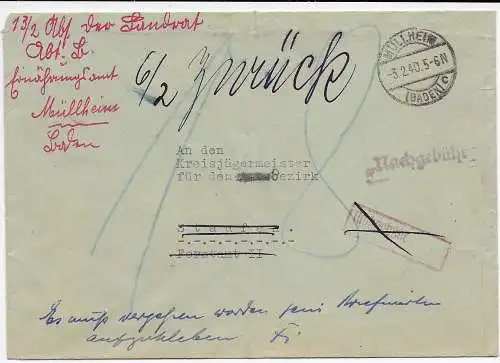 13/2 Abs. der Landrat
Abt. L.
Ernährungsamt
Müllheim
Baden
6/2 Zurück
MÜLLHEIM
-3.2.40.5-6N
(BADEN) c
An den
Kreisjägermeister
für den bezirk
Nachgebühr
Staufen
Forstamt II
Es muß vergessen worden sein Briefmarken
aufzukleben